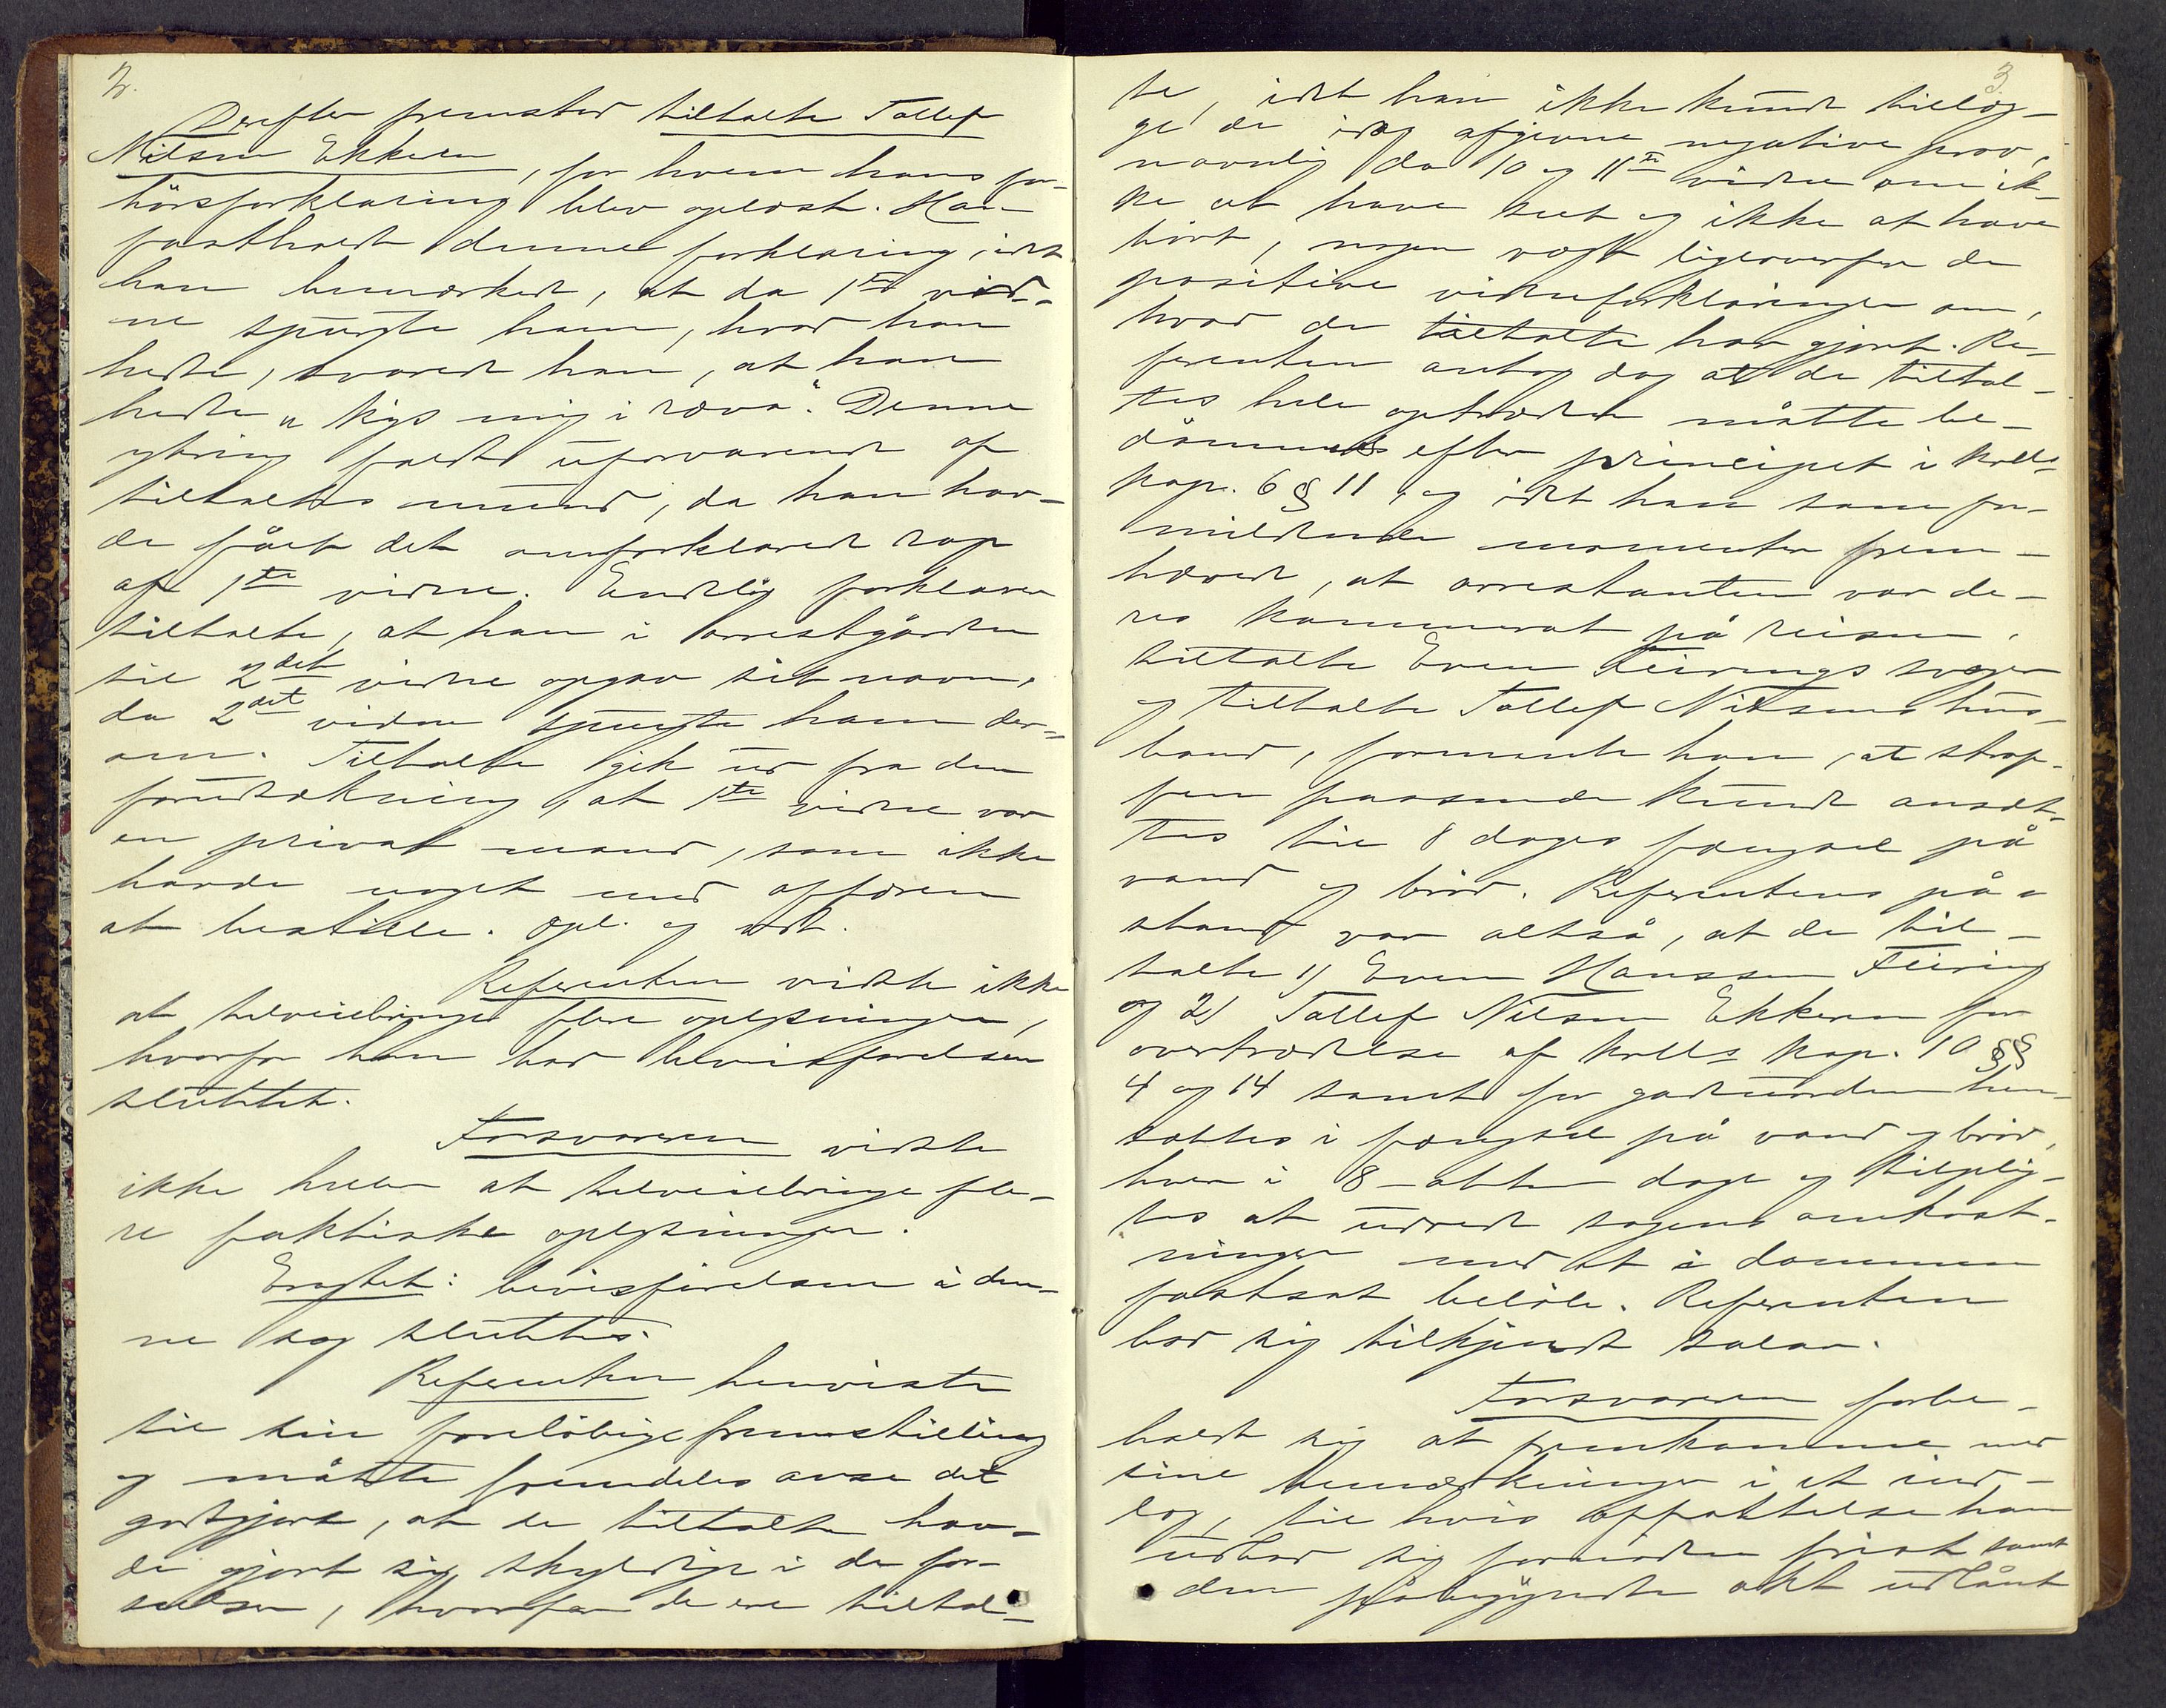 2.
Derefter fremstod tiltalte Tollef
Nilsen Ekkeren, for hvem hans for-
hörsforklaring blev oplæst. Han
fastholdt denne forklaring, idet
han bemærked, at da 1ste vid-
ne spurgte ham, hvad han
hedte, svared han, at han
hedte „kys mig i ræva“. Denne
ytring faldt uforvarende af
tiltaltes mund, da han hav-
de fået det omforklarede rap
af 1ste vidne. Endelig forklarer
tiltalte, at han i arrestgården
til 2det vidne opgav sit navn,
da 2det vidne spurgte ham der-
om. Tiltalte gik ud fra den
forudsætning, at 1ste vidne var
en privat mand, som ikke
havde noget med affæren
at bestille. Opl. og vedt.
Referenten vidste ikke
at tilveiebringe flere oplysninger,
hvorfor han bad bevisførelsen
sluttet.
Forsvareren vidste
ikke heller at tilveiebringe fle-
re faktiske oplysninger.
Eragtet: bevisførelsen i den-
ne sag sluttes.
Referenten henviste
til sin foreløbige fremstilling
og måtte fremdeles anse det
godtgjort, at de tiltalte hav-
de gjort sig skyldige i de for-
seelser, hvorfor de ere tiltal-
3.
te, idet han ikke kunde tillæg-
ge de idag afgivne negative prov,
navnlig da 10 og 11te vidne om ik-
ke at have seet og ikke at have
hört, nogen vægt ligeoverfor de
positive vidneforklaringer om,
hvad de tiltalte har gjort. Re-
ferenten antog dog at de tiltal-
tes hele optræden måtte be-
dömmes efter principet i krlls
kap. 6 § 11, og idet han som for-
mildende momenter frem-
hæved, at arrestanten var de-
res kammerat på reisen,
tiltalte Even Feirings svoger
og tiltalte Tollef Nilsens hus-
bond, formente han, at straf-
fen passende kunde ansæt-
tes til 8 dages fængsel på
vand og bröd. Referentens på-
stand var altså, at de til-
talte 1) Even Hanssen Feiring
og 2) Tollef Nilsen Ekkeren for
overtrædelse af krlls kap. 10 §§
4 og 14 samt for gadeuorden hen-
sættes i fængsel på vand og bröd,
hver i 8 - otte dage og tilplig-
tes at udrede sagens omkost-
ninger med et i dommen
fastsat belöb. Referenten
bad sig tilkjendt salær.
Forsvareren forbe-
holdt sig at fremkomme med
sine bemærkninger i et ind-
læg, til hvis affattelse han
udbad sig fornöden frist samt
den påbegyndte akt udlånt